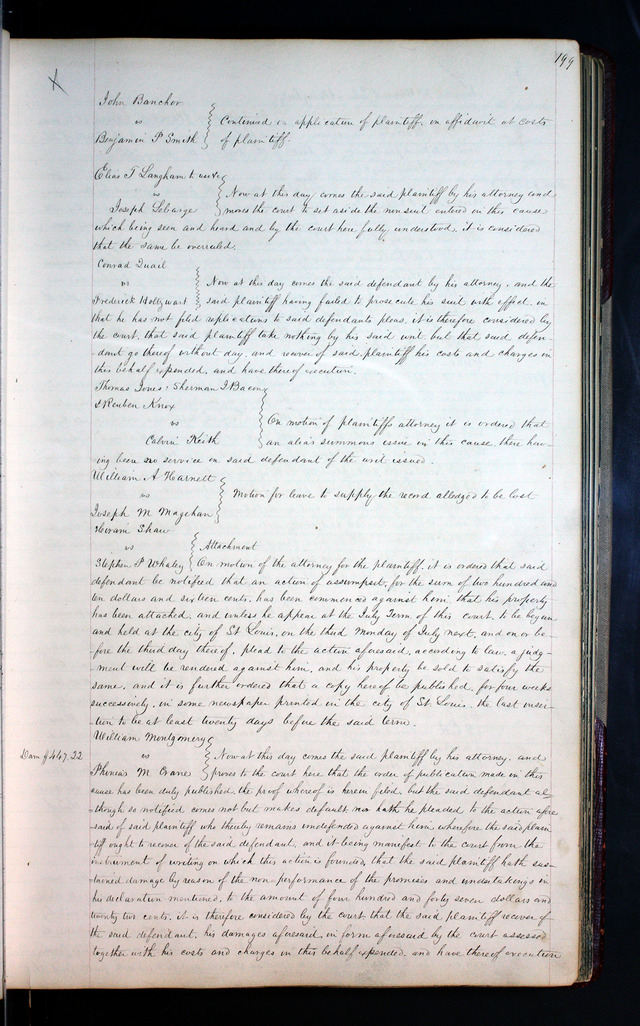 199
X
John Banchor
vs
Benjamin P Smith
Continued on application of plaintiff, on affidavit at costs
of plaintiff.
Elias T Langham to use &c
vs
Joseph Lebarge
Now at this day comes the said plaintiff by his attorney and
moves the court to set aside the nonsuit entered in this cause
which being seen and heard and by the court here fully understood, it is considered
that the same be overruled.
Conrad Quail
vs
Frederick Hollzwart
Now at this day comes the said defendant by his attorney, and the
said plaintiff having failed to prosecute his suit with effect in
that he has not filed replications to said defendants pleas, it is therefore considered by
the court, that said plaintiff take nothing by his said writ but that said defen-
dant go thereof without day, and recover of said plaintiff his costs and charges in
this behalf expended, and have thereof execution.
Thomas Jones, Sherman I Bacon
& Reuben Knox
vs
Calvin Keith
On motion of plaintiffs attorney it is ordered that
an alias summons issue in this cause there hav-
ing been no service on said defendant of the writ issued.
William A Harnett
vs
Joseph M Magehan
Motion for leave to supply the record alledged to be lost
Hiram Shaw
vs
Stephen P Whaley
Attachment
On motion of the attorney for the plaintiff, it is ordered that said
defendant be notified that an action of assumpsit, for the sum of two hundred and
ten dollars and sixteen cents, has been commenced against him, that his property
has been attached, and unless he appear at the July Term of this court, to be begun
and held at the city of St Louis, on the third Monday of July next, and on or be-
fore the third day thereof, plead to the action aforesaid, according to law, a judg-
ment will be rendered against him, and his property be sold to satisfy the
same, and it is further ordered that a copy hereof be published, for four weeks
successively, in some newspaper printed in the city of St Louis, the last inser-
tion to be at least twenty days before the said term.
William Montgomery
Dam $447.22
vs
Phineas M Crane
Now at this day comes the said plaintiff by his attorney, and
proves to the court here that the order of publication made in this
cause has been duly published, the proof whereof is herein filed, but the said defendant al-
though so notified comes not but makes default nor hath he pleaded to the action afore
said of said plaintiff who thereby remains undefended against him wherefore the said plain-
tiff ought to recover of the said defendant, and it being manifest to the court from the
instrument of writing on which this action is founded, that the said plaintiff hath sus-
tained damage by reason of the non-performance of the promises and undertakings in
his declaration mentioned, to the amount of four hundred and forty seven dollars and
twenty two cents, it is therefore considered by the court that the said plaintiff recover of
the said defendant, his damages aforesaid, in form aforesaid by the court assessed
together with his costs and charges in this behalf expended, and have thereof execution